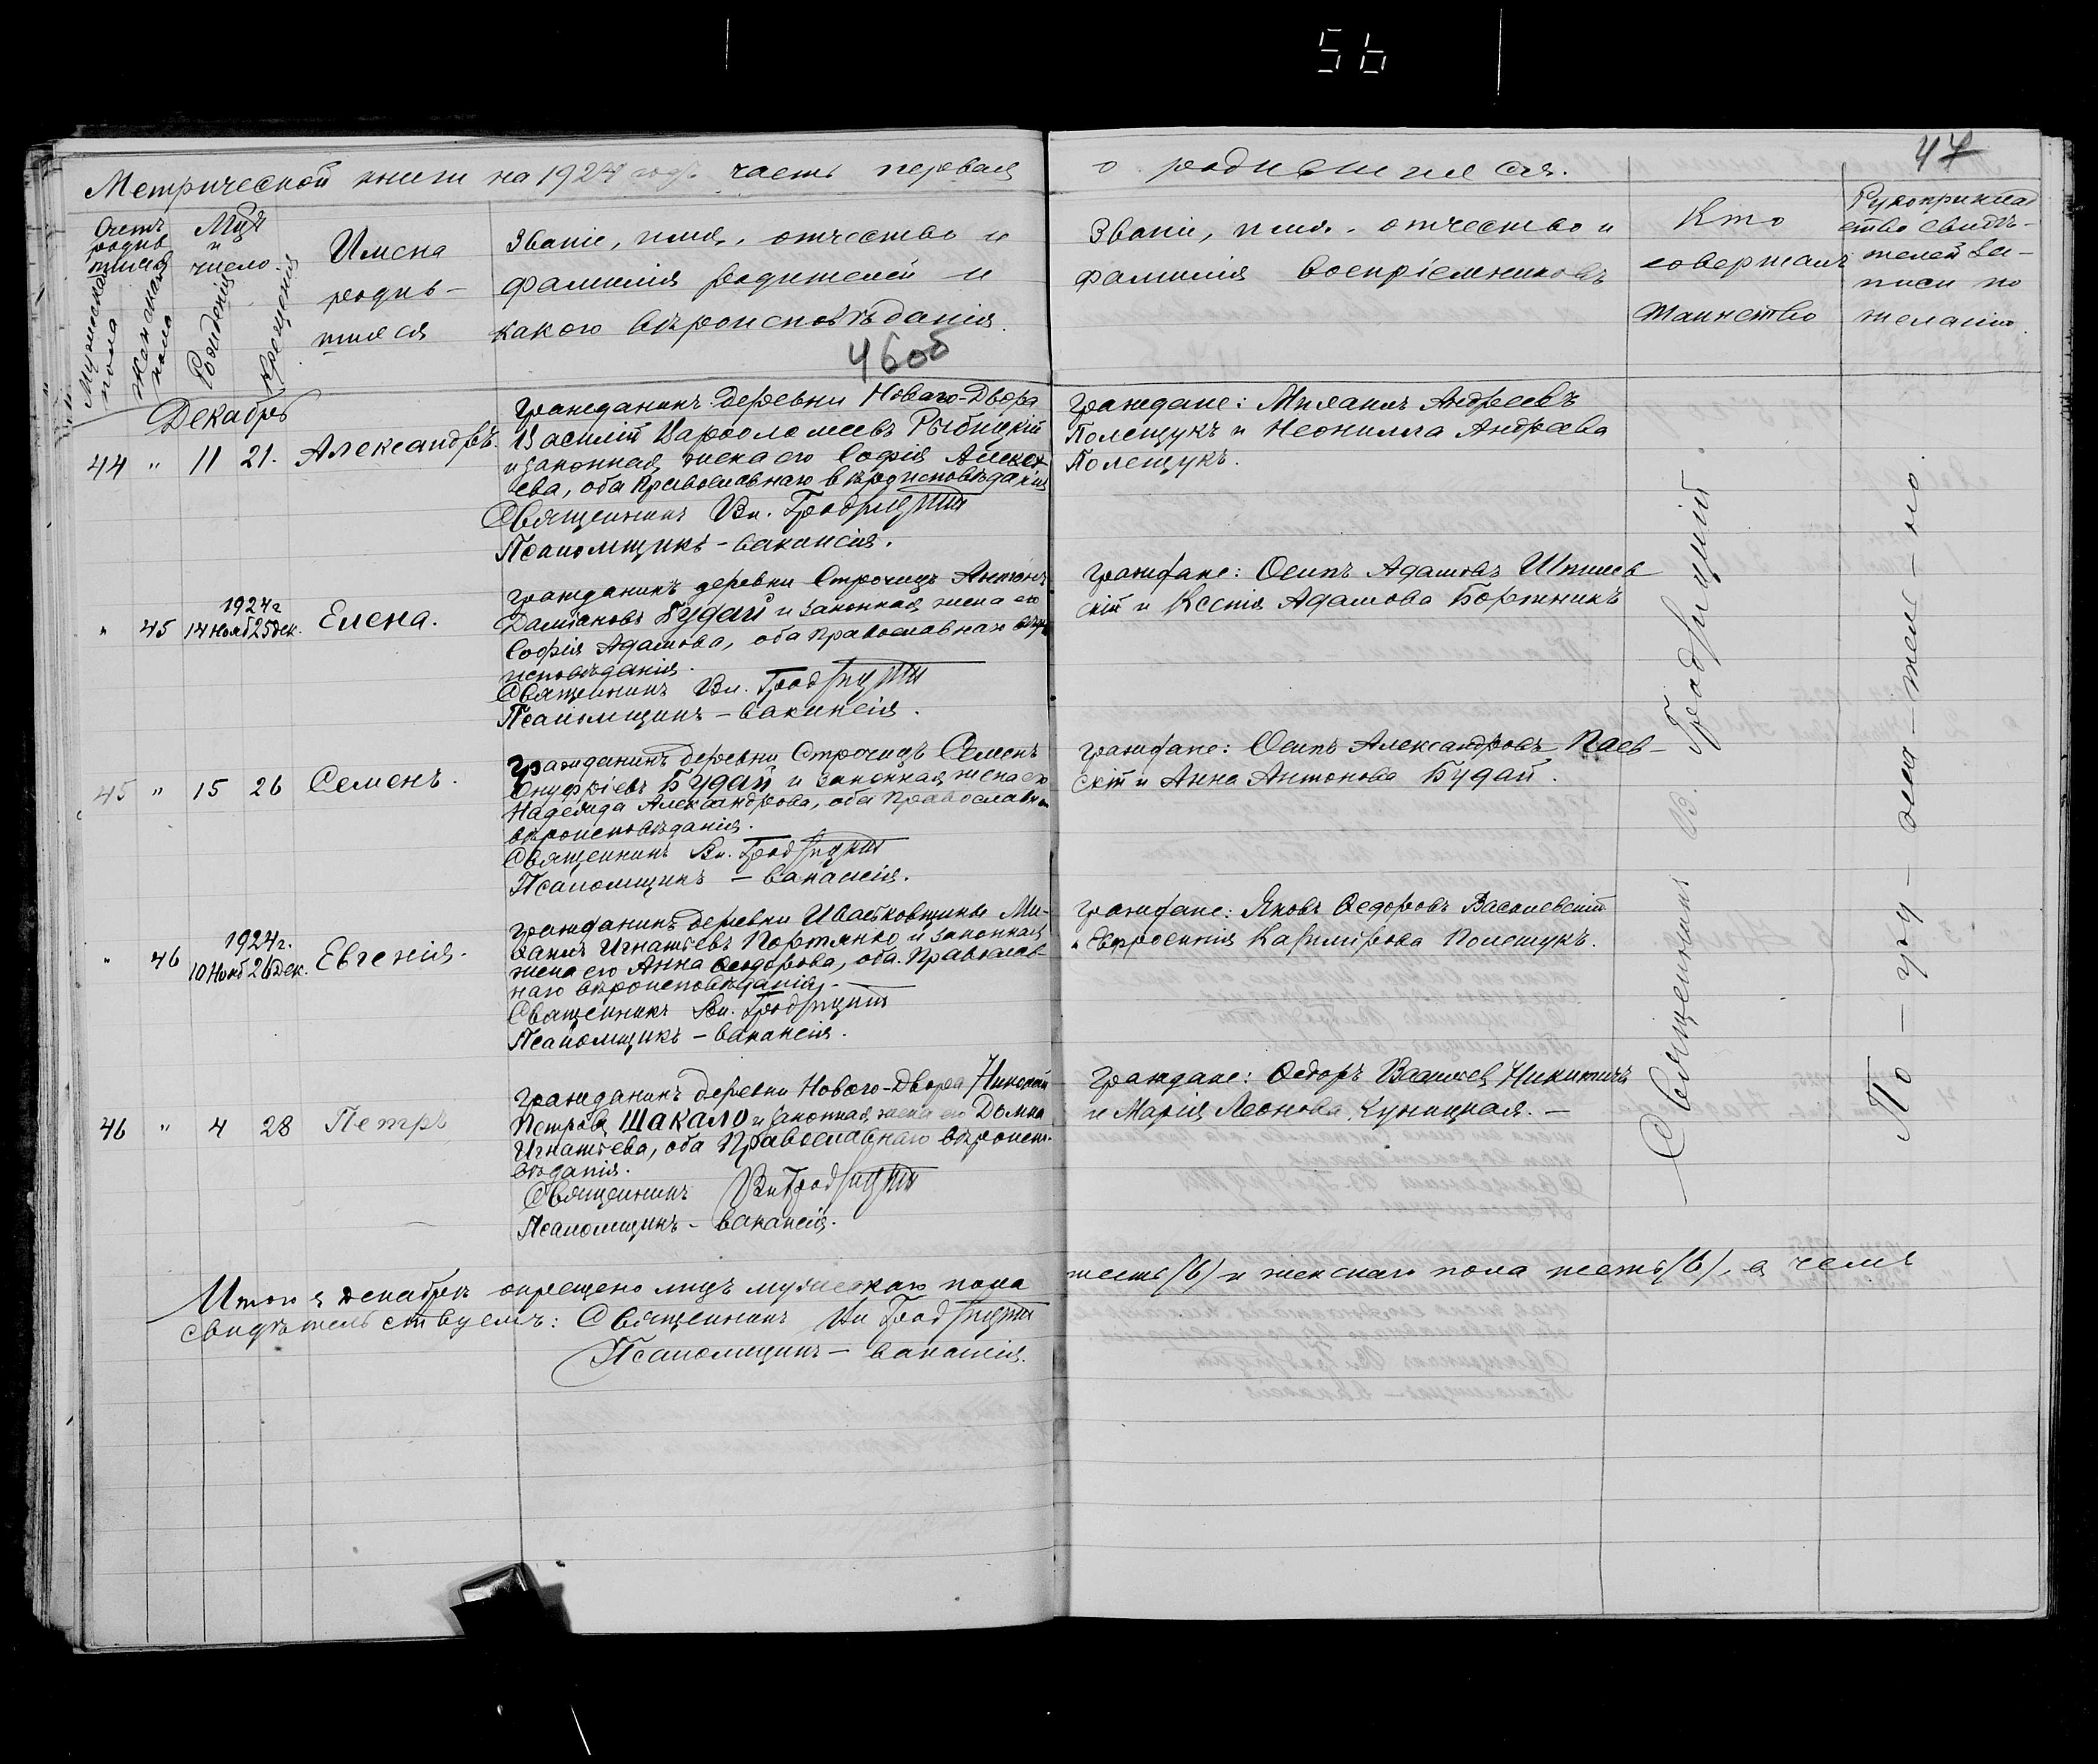 56
47
Метрической книги на 1924 годъ часть первая о родившихся.
Счетъ родившихся
Мужскаго пола
Женскаго пола
Мѣсяцъ и число
Рожденія
Крещенія
Имена
родив-
шихся
Званіе, имя, отчество и
фамилія родителей и
какого вѣроисповѣданія.
Званіе, имя, отчество и
фамилія воспріемниковъ
Кто
совершалъ
таинство
Рукоприклад
ство свидѣ-
телей за-
писи по
желанію.
46об
Декабрь
44 " 11 21. Александръ.
Гражданинъ деревни Новаго-Двора
Василій Варѳоломеевъ Рыбицкій
и законная жена его Софія Алексѣ-
ева, оба православнаго вѣроисповѣданія
Священникъ Вл. Гродзицкій
Псаломщикъ - вакансія.
Граждане: Михаилъ Андреевъ
Полещукъ и Неонилла Андреева
Полещукъ.
" 45 1924 г. 14 Нояб 25 дек. Елена.
Гражданинъ деревни Строчицъ Антонъ
Даміановъ Будай и законная жена его
Софія Адамова, оба православнаго вѣро
исповѣданія.
Священникъ Вл. Гродзицкій
Псаломщикъ - вакансія.
Граждане: Осипъ Адамовъ Шпилев
скій и Ксенія Адамова Бортникъ
45 " 15 26 Семенъ.
Гражданинъ деревни Строчицъ Семенъ
Онуфріевъ Будай и законная жена его
Надежда Александрова, оба православна
вѣроисповѣданія.
Священникъ Вл. Гродзицкій
Псаломщикъ - вакансія.
Граждане: Осипъ Александровъ Раев-
скій и Анна Антонова Будай.
" 46 1924 г. 10 Нояб 26 Дек. Евгенія.
Гражданинъ деревни Иваськовщины Ми-
хаилъ Игнатьевъ Портянко и законная
жена его Анна Ѳеодорова, оба православ-
наго вѣроисповѣданія.
Священникъ Вл. Гродзицкій
Псаломщикъ - вакансія.
Граждане: Яковъ Ѳедоровъ Василевскій
и Евфросинія Казимірова Полещукъ.
46 " 4 28 Петръ
Гражданинъ деревни Новаго-Двора Николай
Петровъ Шакало и законная жена его Домна
Игнатьева, оба православнаго вѣроиспо-
вѣданія.
Священникъ Вл. Гродзицкій
Псаломщикъ - вакансія.
Граждане: Ѳедоръ Никитичъ
и Марія Леонова Куницкая. -
Священникъ В. Гродзицкій
Итого въ декабрѣ окрещено лицъ мужескаго пола шесть (6) и женскаго пола шесть (6), въ чемъ
свидѣтельствуемъ: Священникъ Вл Гродзицкій
Псаломщикъ - вакансія.